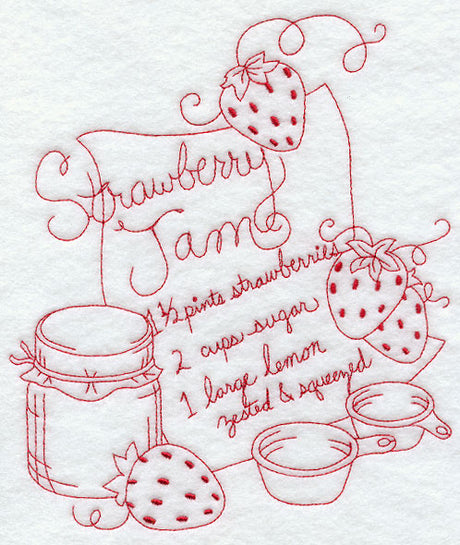 Strawberry
Jam
1 ½ pints strawberries
2 cups sugar
1 large lemon
zested & squeezed